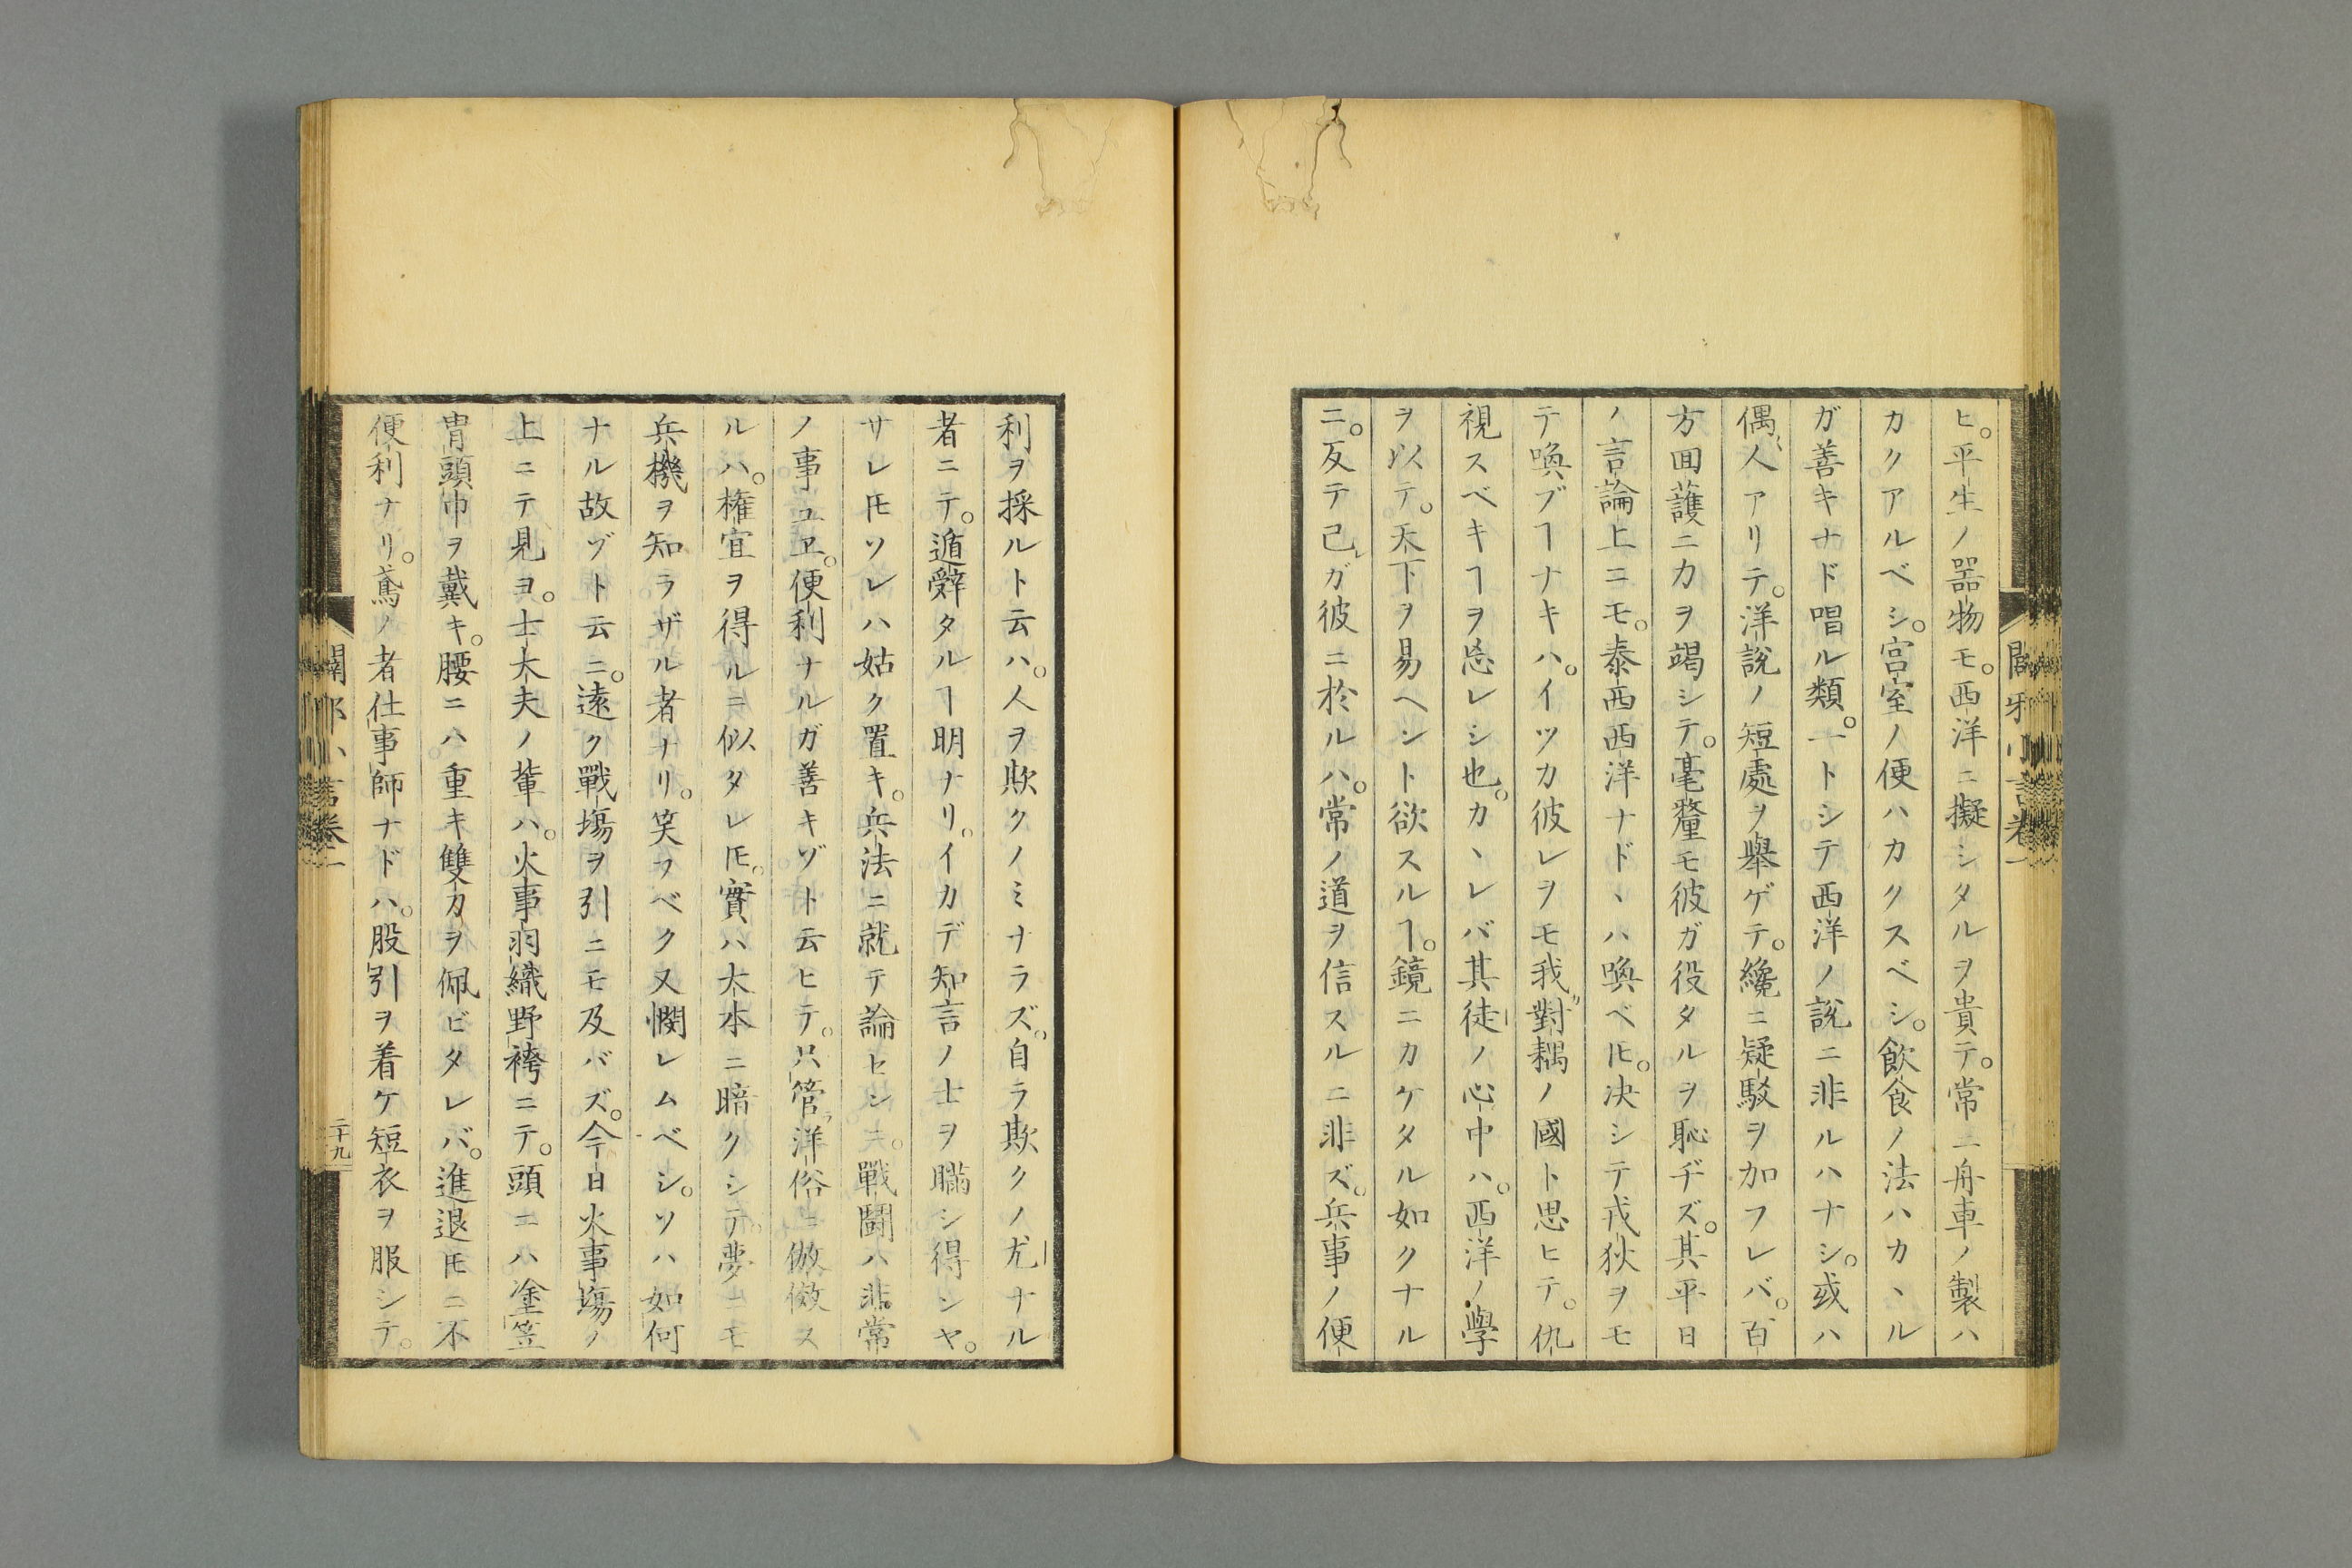 ヒ。平生ノ噐物モ。西洋ニ擬シタルヲ貴テ。常ニ舟車ノ製ハ
カクアルベシ。宮室ノ便ハカクスベシ。飲食ノ法ハカヽル
ガ善キナド唱ル類。一トシテ西洋ノ説ニ非ルハナシ。或ハ
偶〻人アリテ。洋説ノ短處ヲ舉ゲテ。纔ニ疑駁ヲ加フレバ。百
方囬護ニ力ヲ竭シテ。毫釐モ彼ガ役タルヲ恥ヂズ。其平日
ノ言論上ニモ。泰西西洋ナドヽハ喚ベ𪜈。决シテ戎狄ヲモ
テ喚ブヿナキハ。イツカ彼レヲモ我對耦ノ國ト思ヒテ。仇
視スベキヿヲ忘レシ也。カヽレバ其徒ノ心中ハ。西洋ノ學
ヲ以テ。天下ヲ易ヘント欲スルヿ。鏡ニカケタル如クナル
ニ。反テ己レガ彼ニ於ルハ。常ノ道ヲ信スルニ非ズ。兵事ノ便
闢邪小言卷一
利ヲ採ルト云ハ。人ヲ欺クノミナラズ。自ラ欺クノ尤ナル
者ニテ。遁辭タルヿ明ナリ。イカデ知言ノ士ヲ瞞シ得ンヤ。
サレ𪜈ソレハ姑ク置キ。兵法ニ就テ論センニ。戰鬪ハ非常
ノ事ユヱ。便利ナルガ善キゾト云ヒテ。只管ラ洋俗ニ倣傚ス
ルハ。権宜ヲ得ルニ似タレ𪜈。實ハ大本ニ暗クシテ。夢ニモ
兵機ヲ知ラザル者ナリ。笑フベク又憫レムベシ。ソハ如何
ナル故ゾト云ニ。遠ク戰塲ヲ引ニモ及バズ。今日火事塲ノ
上ニテ見ヨ。士大夫ノ輩ハ。火事羽織野袴ニテ。頭ニハ塗笠
冑頭巾ヲ戴キ。腰ニハ重キ雙刀ヲ佩ビタレバ。進退𪜈ニ不
便利ナリ。鳶ノ者仕事師ナドハ。股引ヲ着ケ短衣ヲ服シテ。
闢邪小言卷一
二十九